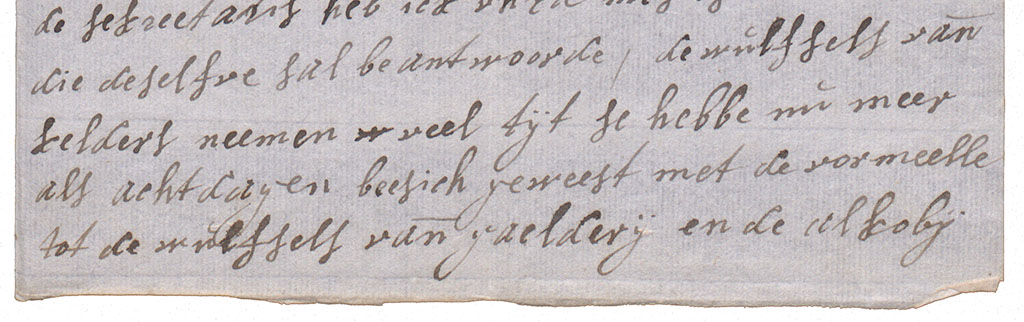 de sekreetaris heb ick
die deselfve sal beantwoorde, de wulfsels van
kelders neemen veel tyt se hebbe nu meer
als achtdagen beesich geweest met de vormeelle
tot de wulfsels van gaelderÿ en de alkobÿ